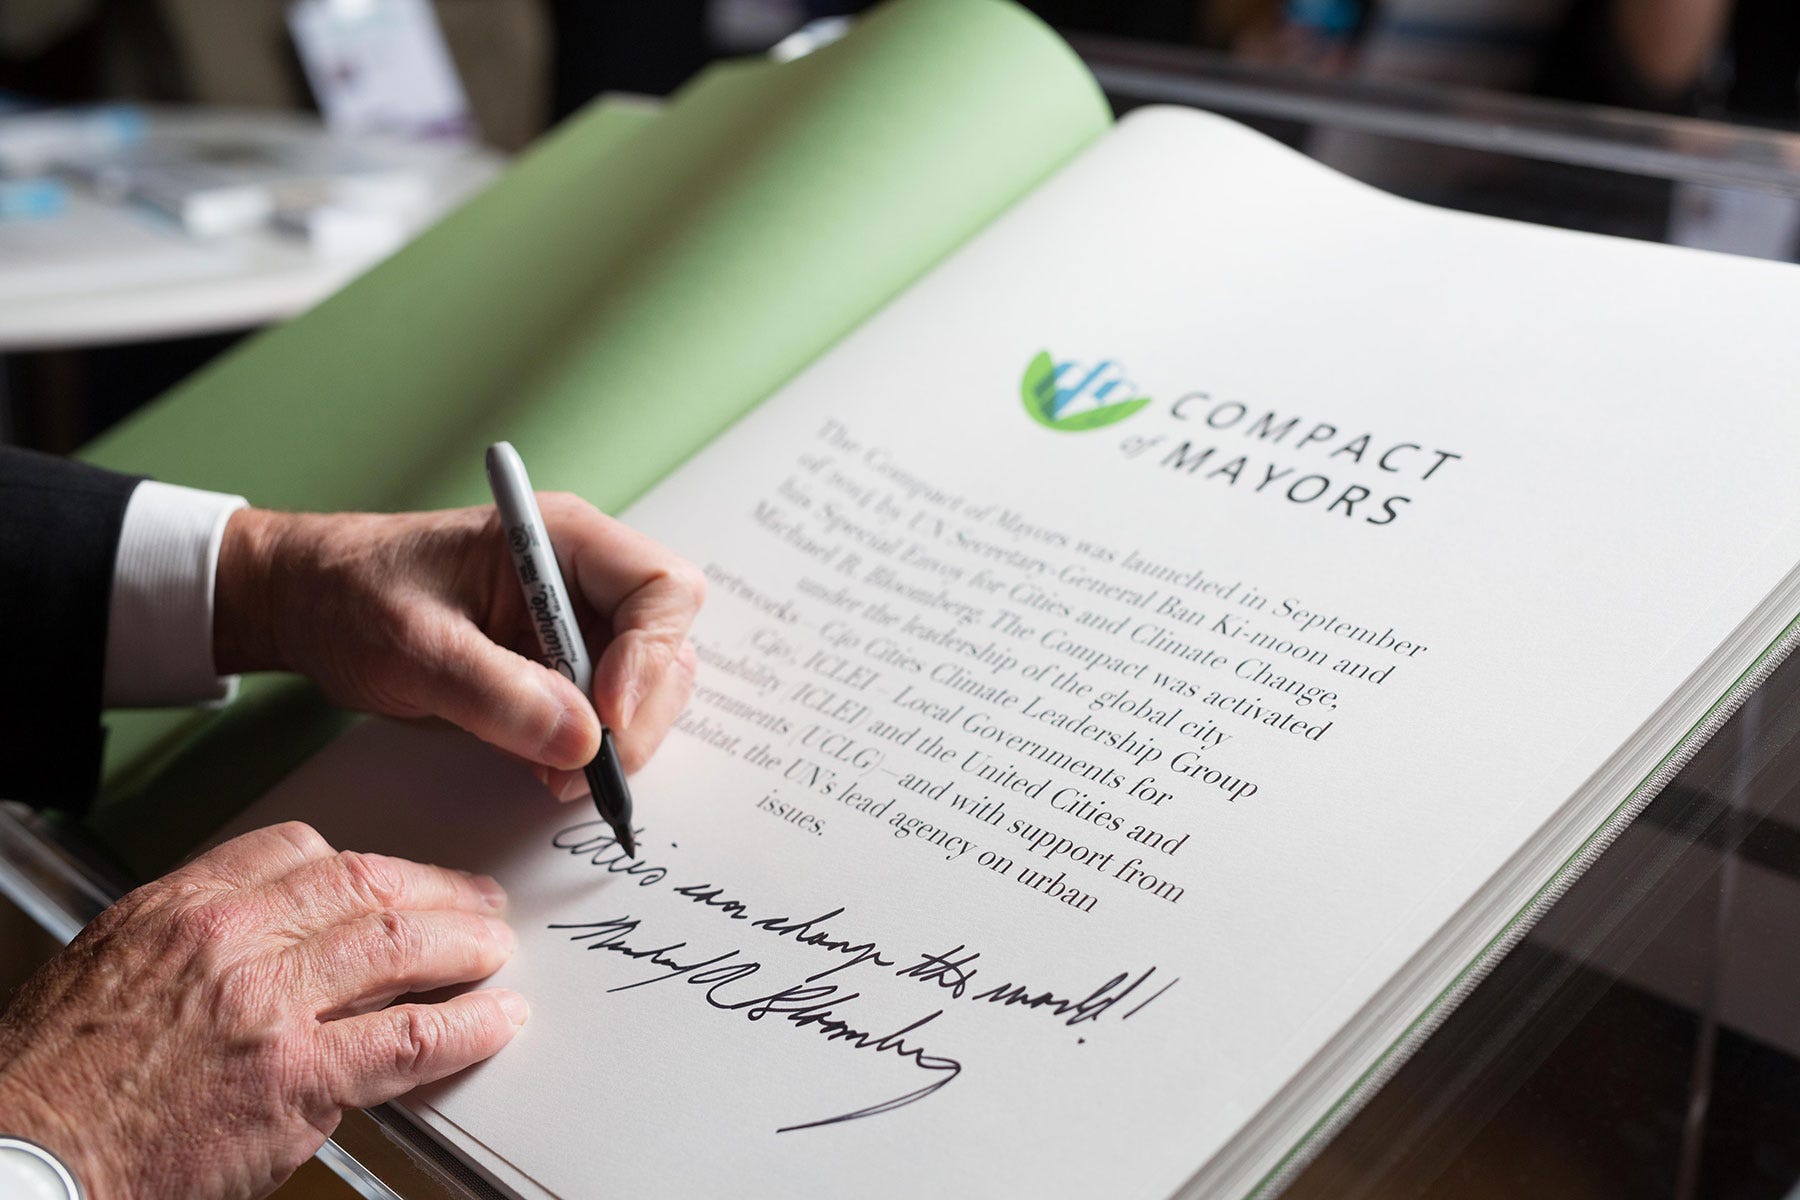 COMPACT
of MAYORS
The Compact of Mayors was launched in September
of 2014 by UN Secretary-General Ban Ki-moon and
his Special Envoy for Cities and Climate Change,
Michael R. Bloomberg. The Compact was activated
under the leadership of the global city
networks – C40 Cities Climate Leadership Group
C40), ICLEI – Local Governments for
(ICLEI) and the United Cities and
(UCLG) –and with support from
the UN's lead agency on urban
issues.
Cities can change the world!
Michael R Bloomberg
Sharpie